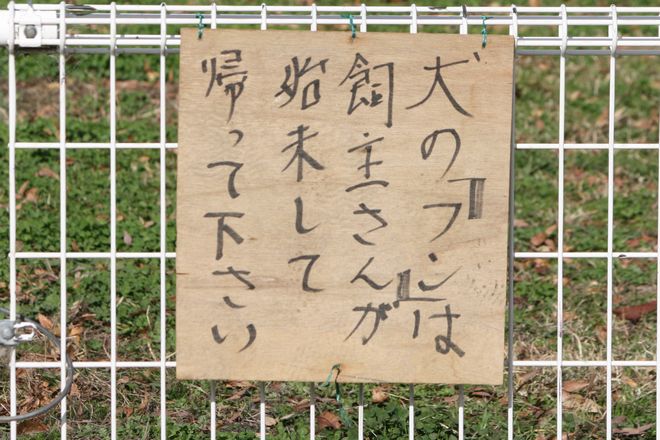 犬の『フン』は
飼主さんが
始末して
帰って下さい